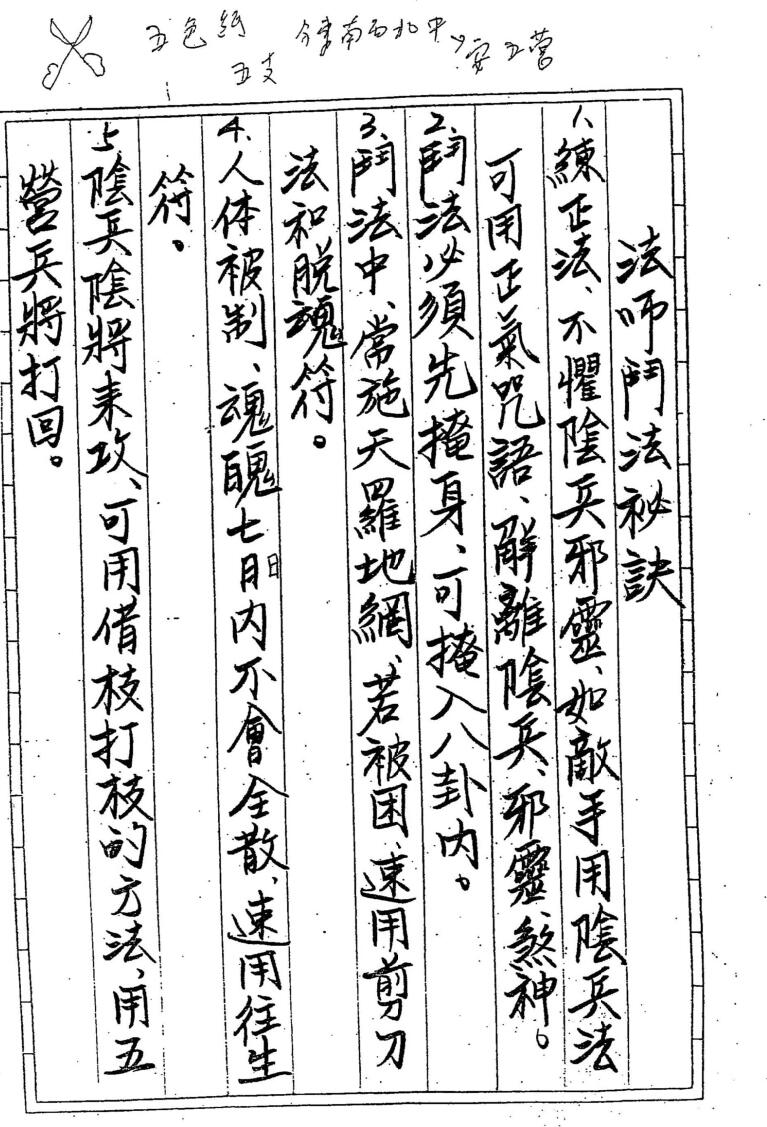 五色紙
五支
分東南西北中
安五營
法師鬥法祕訣
1、練正法、不懼陰兵邪靈、如敵手用陰兵法
可用正氣咒語、解離陰兵、邪靈煞神。
2、鬥法必須先掩身、可掩入八卦内。
3、鬥法中、常施天羅地網、若被困、速用剪刀
法和脱魂符。
4、人体被制、魂魄七日内不會全散、速用往生
符。
5、陰兵陰將来攻、可用借枝打枝的方法、用五
營兵將打回。